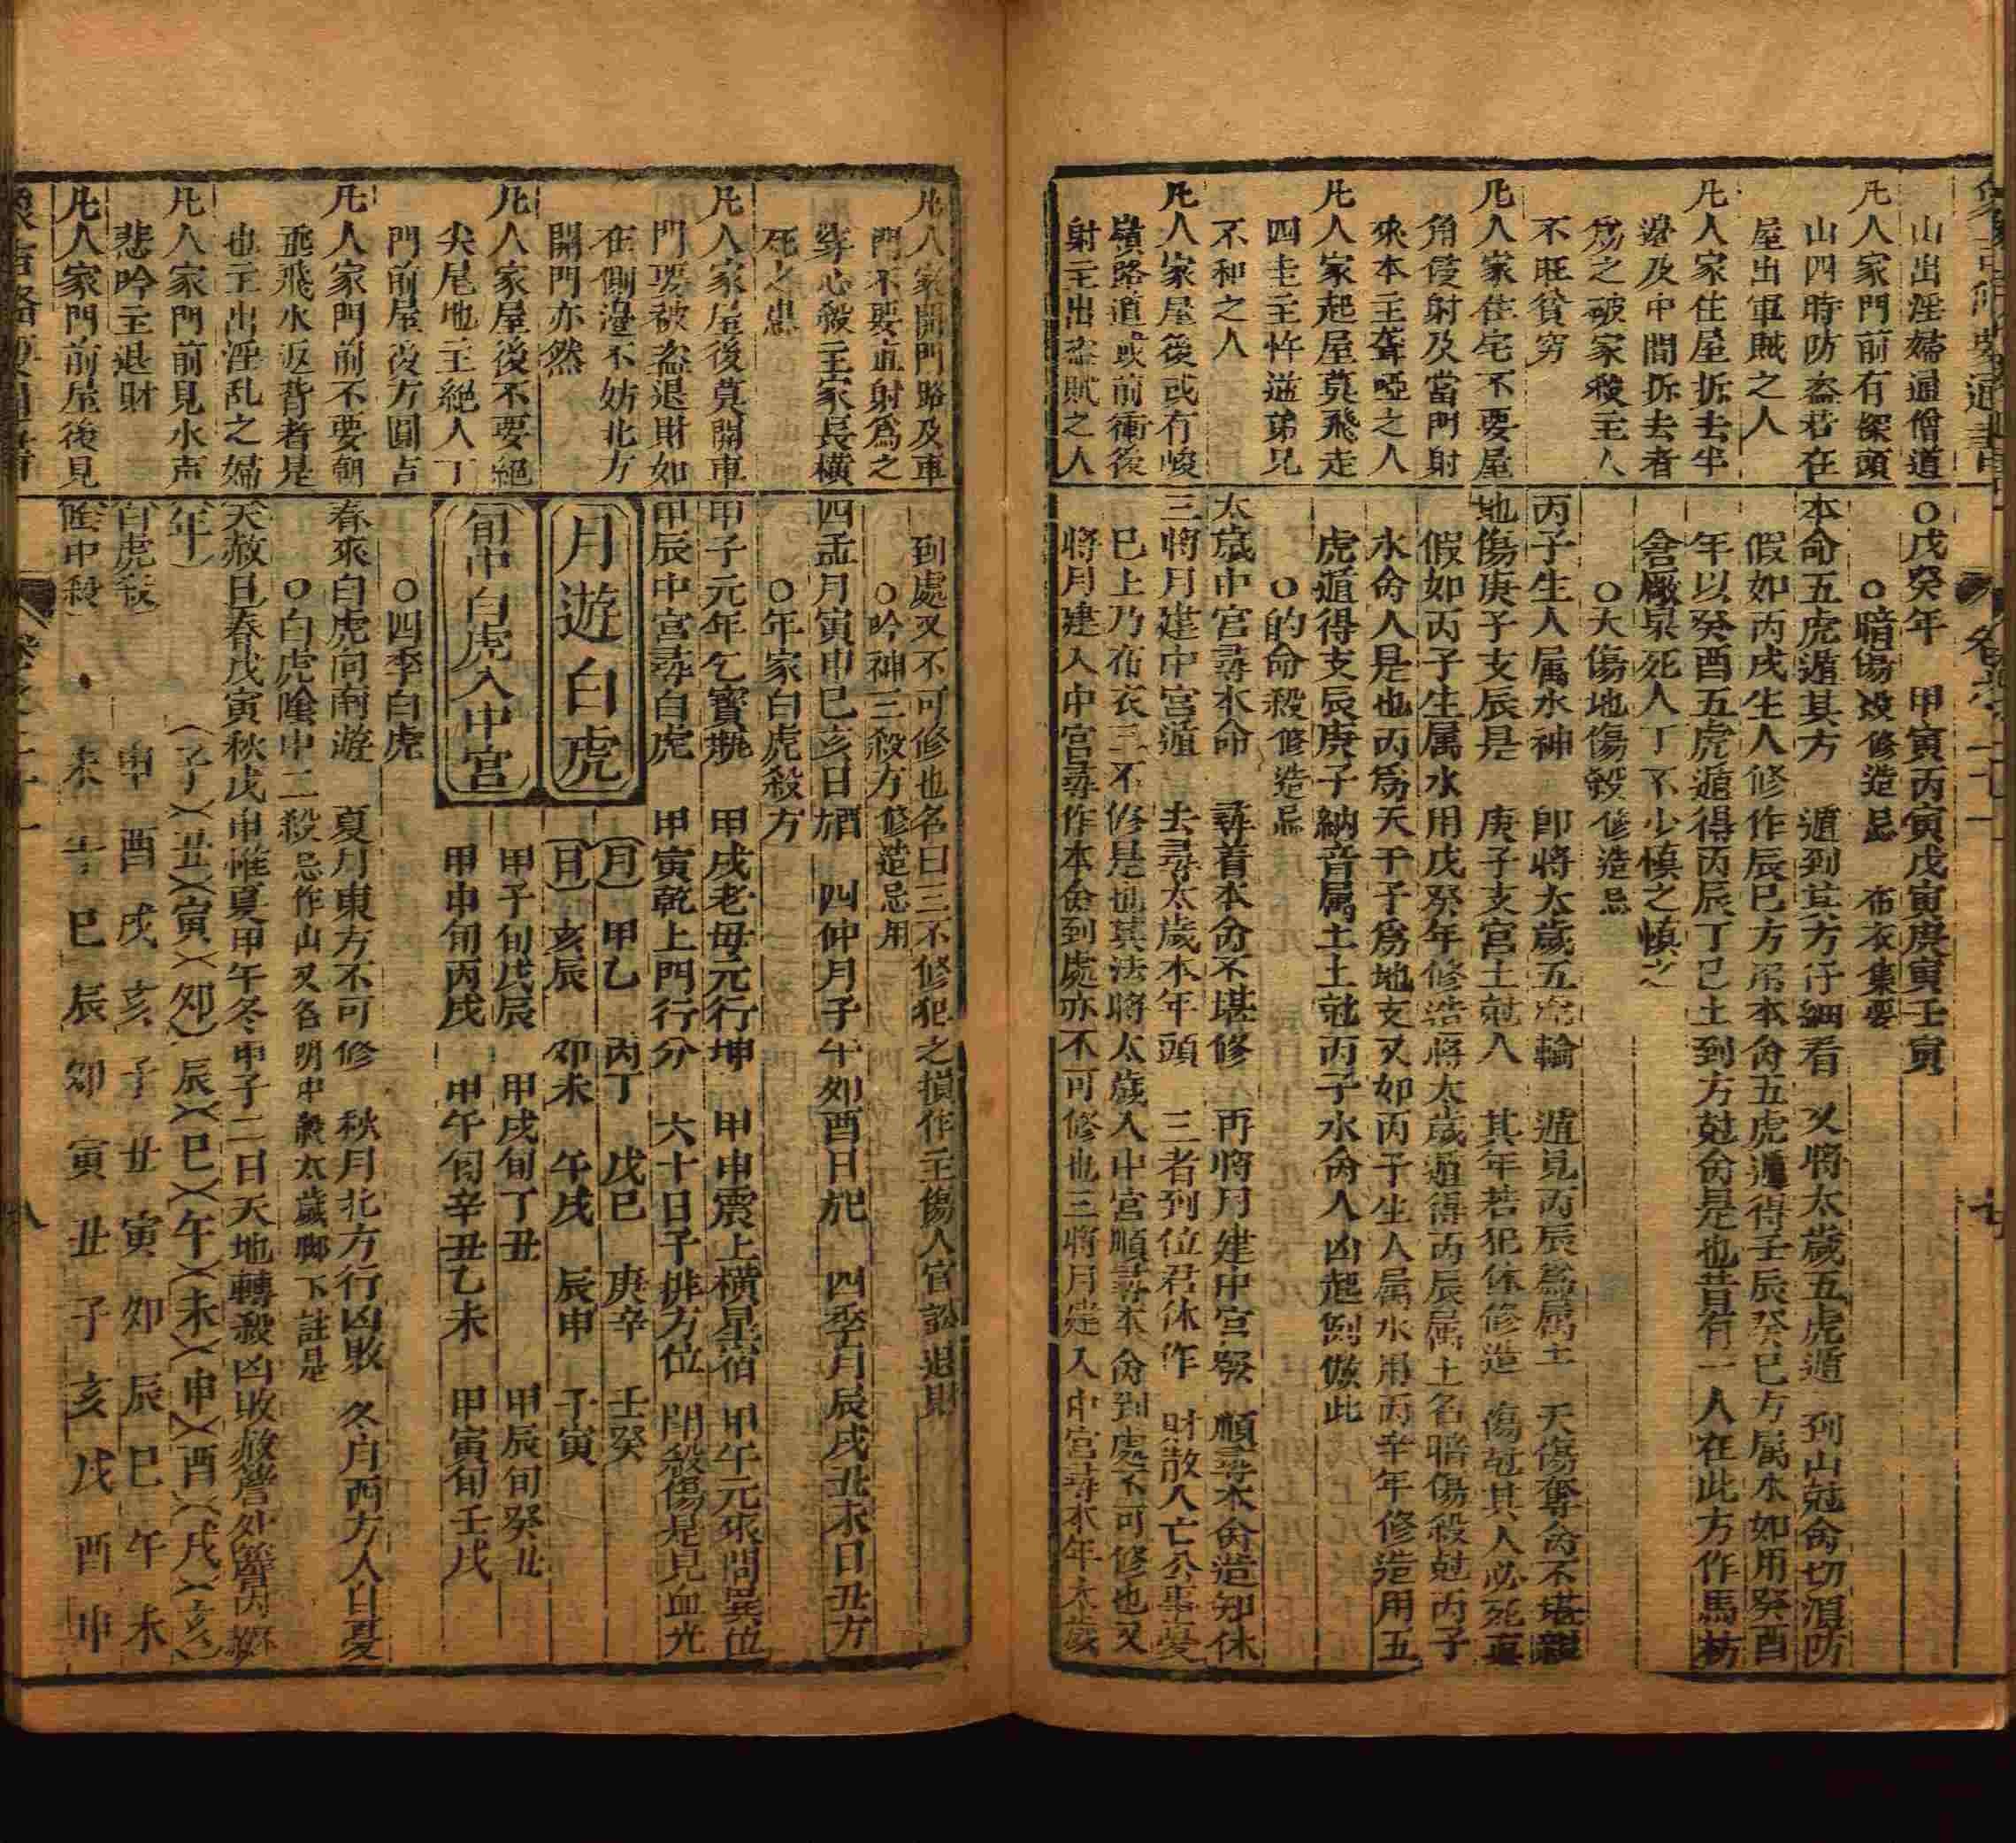 山出淫婦通僧道
凡人家門前有探頭
山四時防盗若在
屋出軍賊之人
凡人家住屋拆去半
邊及中間拆去者
為之破家殺主人
不旺貧穷
凡人家住宅不要屋
角侵射及當門射
來本主聾啞之人
凡人家起屋莫飛走
四圭主忤逆弟兄
不和之人
凡人家屋後或有峻
嶺路道或前衝後
射主出盗賊之人
○戊癸年 甲寅丙寅戊寅庚寅壬寅
○暗傷殺修造忌 布衣集要
本命五虎遁其方 遁到其方仔細看 又將太歲五虎遁 到山尅命切須防
假如丙戌生人修作辰巳方吊本命五虎遁得壬辰癸巳方属水如用癸酉
年以癸酉五虎遁得丙辰丁巳土到方尅命是也昔有一人在此方作馬枋
果死人丁不少慎之慎之
○天傷地傷殺修造忌
丙子生人属水神 即將太歲五虎輪 遁見丙辰為属土 天傷奪命不堪親
地傷庚子支辰是 庚子支宮土尅人 其年若犯休修造 傷尅其人必死真
假如丙子生属水用戊癸年修造將太歲遁得丙辰属土名暗傷殺尅丙子
水命人是也丙為天干子為地支又如丙子生人属水用丙辛年修造用五
虎遁得支辰庚子納音属土土尅丙子水命人凶起例倣此
○的命殺修造忌
太歲中宮尋本命 尋着本命不堪修 再將月建中宮發 順尋本命造知休
三將月建中宮遁 去尋太歲本年頭 三者到位君休作 財散人亡公事憂
巳上乃布衣三不修是也其法將太歲入中宮順尋本命到處不可修也又
將月建入中宮尋作本命到處亦不可修也三將月建入中宮尋本年太歲
凡人家開門路及車
門不要直射為之
穿心殺主家長橫
死之患
凡人家屋後莫開車
門要被盗退財如
在側邊不妨北方
開門亦然
凡人家屋後不要絕
尖尾地主絕人丁
門前屋後方圓吉
凡人家門前不要朝
垂飛水返背者是
也主出淫乱之婦
凡人家門前見水声
悲吟主退財
凡人家門前屋後見
到處又不可修也名曰三不修犯之損作主傷人官訟退財
○吟神三殺方修造忌用
四孟月寅申巳亥日酒 四仲月子午卯酉日 四季月辰戌丑未日丑方
○年家白虎殺方
甲子元年乞寶 甲戌老母元行坤 甲申震上横星宿 甲午元來問巽位
甲辰中宮尋白虎 甲寅乾上門行分 六十日子排方位 開殺傷是見血光
月遊白虎
月 甲乙 丙丁 戊巳 庚辛 壬癸
日 亥辰 卯未 午戌 辰申 子寅
旬中白虎入中宮
甲子旬戊辰 甲戌旬丁丑 甲辰旬癸丑
甲申旬丙戌 甲午旬辛丑乙未 甲寅旬壬戌
○四季白虎
春來白虎向南遊 夏月東方不可修 秋月北方行凶敗 冬月西方人自憂
○白虎陰中二殺忌作山又名明中殺太歲脚下註是
天赦日春戊寅秋戊申惟夏甲午冬甲子二日天地轉殺凶
年 子 丑 寅 卯 辰 巳 午 未 申 酉 戌 亥
白虎殺 申 酉 戌 亥 子 丑 寅 卯 辰 巳 午 未
陰中殺 未 午 巳 辰 卯 寅 丑 子 亥 戌 酉 申